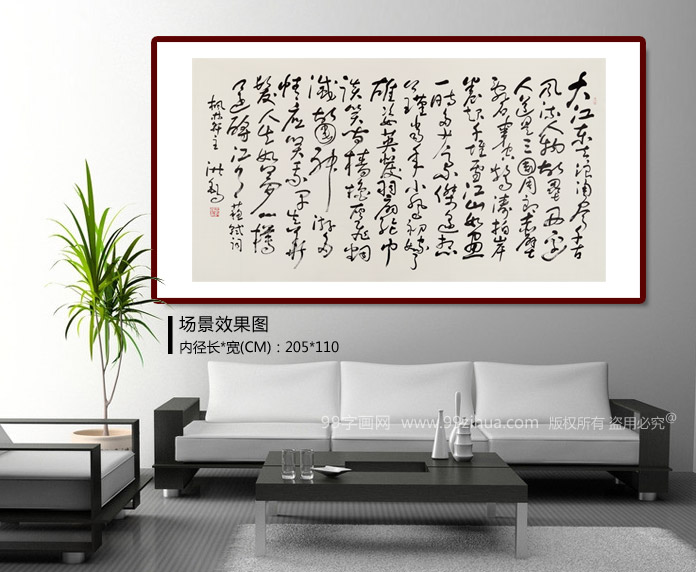 大江东去浪淘尽千古
风流人物故垒西边
人道是三国周郎赤壁
乱石穿空惊涛拍岸
卷起千堆雪江山如画
一时多少豪杰遥想
公瑾当年小乔初嫁了
雄姿英发羽扇纶巾
谈笑间樯橹灰飞烟
灭故国神游多
情应笑我早生华
发人生如梦一樽
还酹江月 苏轼词
场景效果图
内径长*宽(CM)：205*110
99字画网 www.99zihua.com 版权所有 盗用必究@